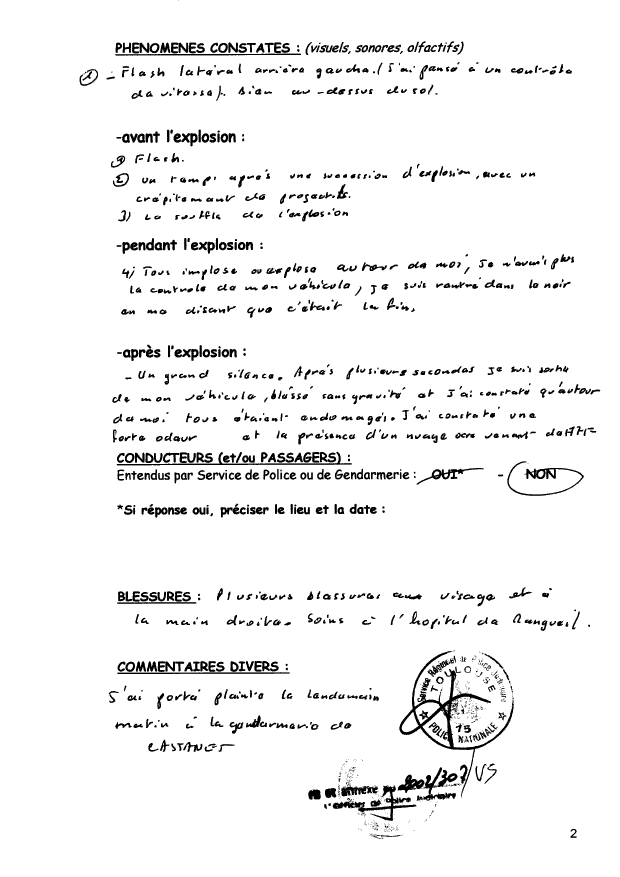 PHENOMENES CONSTATES : (visuels, sonores, olfactifs)
① - Flash latéral arrière gauche. (J'ai pensé à un contrôle
de vitesse). Bien au-dessus du sol.
-avant l'explosion :
1) Flash.
2) un temps après une succession d'explosion, avec un
crépitement de projectiles.
3) Le souffle de l'explosion
-pendant l'explosion :
4) Tous implose ou explose autour de moi, Je n'avais plus
le contrôle de mon véhicule, je suis rentré dans le noir
en me disant que c'était la fin.
-après l'explosion :
- Un grand silence. Après plusieurs secondes je suis sortie
de mon véhicule, blessé sans gravité et J'ai constaté qu'autour
de moi tous étaient endomagés. J'ai constaté une
forte odeur et la présence d'un nuage ocre venant d'AZF
CONDUCTEURS (et/ou PASSAGERS) :
Entendus par Service de Police ou de Gendarmerie : OUI* - NON
*Si réponse oui, préciser le lieu et la date :
BLESSURES : Plusieurs blessures au visage et à
la main droite. Soins à l'hopital de Rangueil.
COMMENTAIRES DIVERS :
J'ai porté plainte le lendemain
matin à la gendarmerie de
CASTANET
Service Régional de Police Judiciaire
TOULOUSE
15
POLICE NATIONALE
2002/307/VS
l'Officier de Police Judiciaire
2